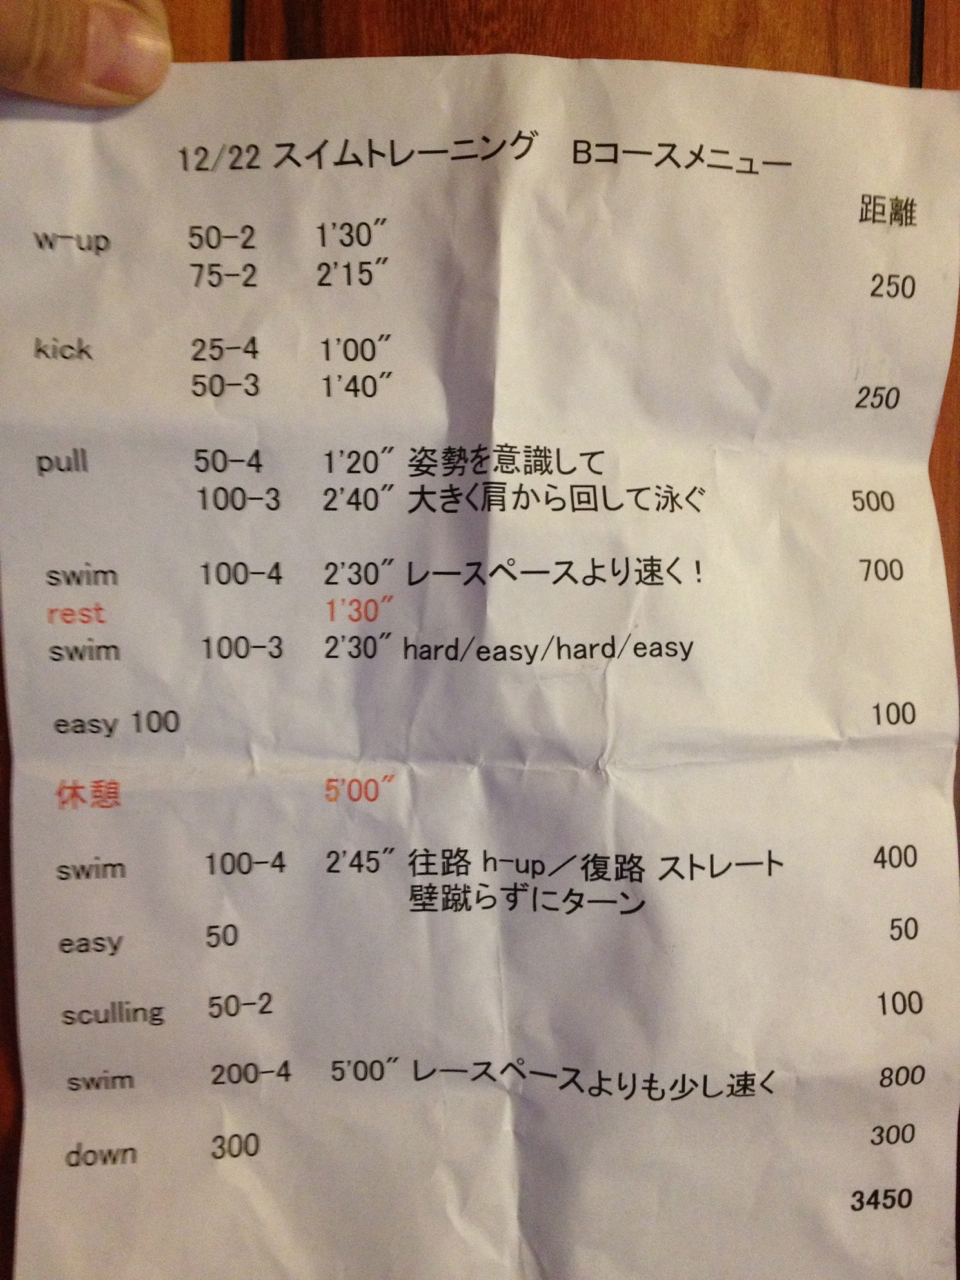 12/22 スイムトレーニング Bコースメニュー
距離
w-up 50-2 1'30"
75-2 2'15" 250
kick 25-4 1'00"
50-3 1'40" 250
pull 50-4 1'20" 姿勢を意識して
100-3 2'40" 大きく肩から回して泳ぐ 500
swim 100-4 2'30" レースペースより速く! 700
rest 1'30"
swim 100-3 2'30" hard/easy/hard/easy
easy 100 100
休憩 5'00"
swim 100-4 2'45" 往路 h-up/復路 ストレート 400
壁蹴らずにターン
easy 50 50
sculling 50-2 100
swim 200-4 5'00" レースペースよりも少し速く 800
down 300 300
3450